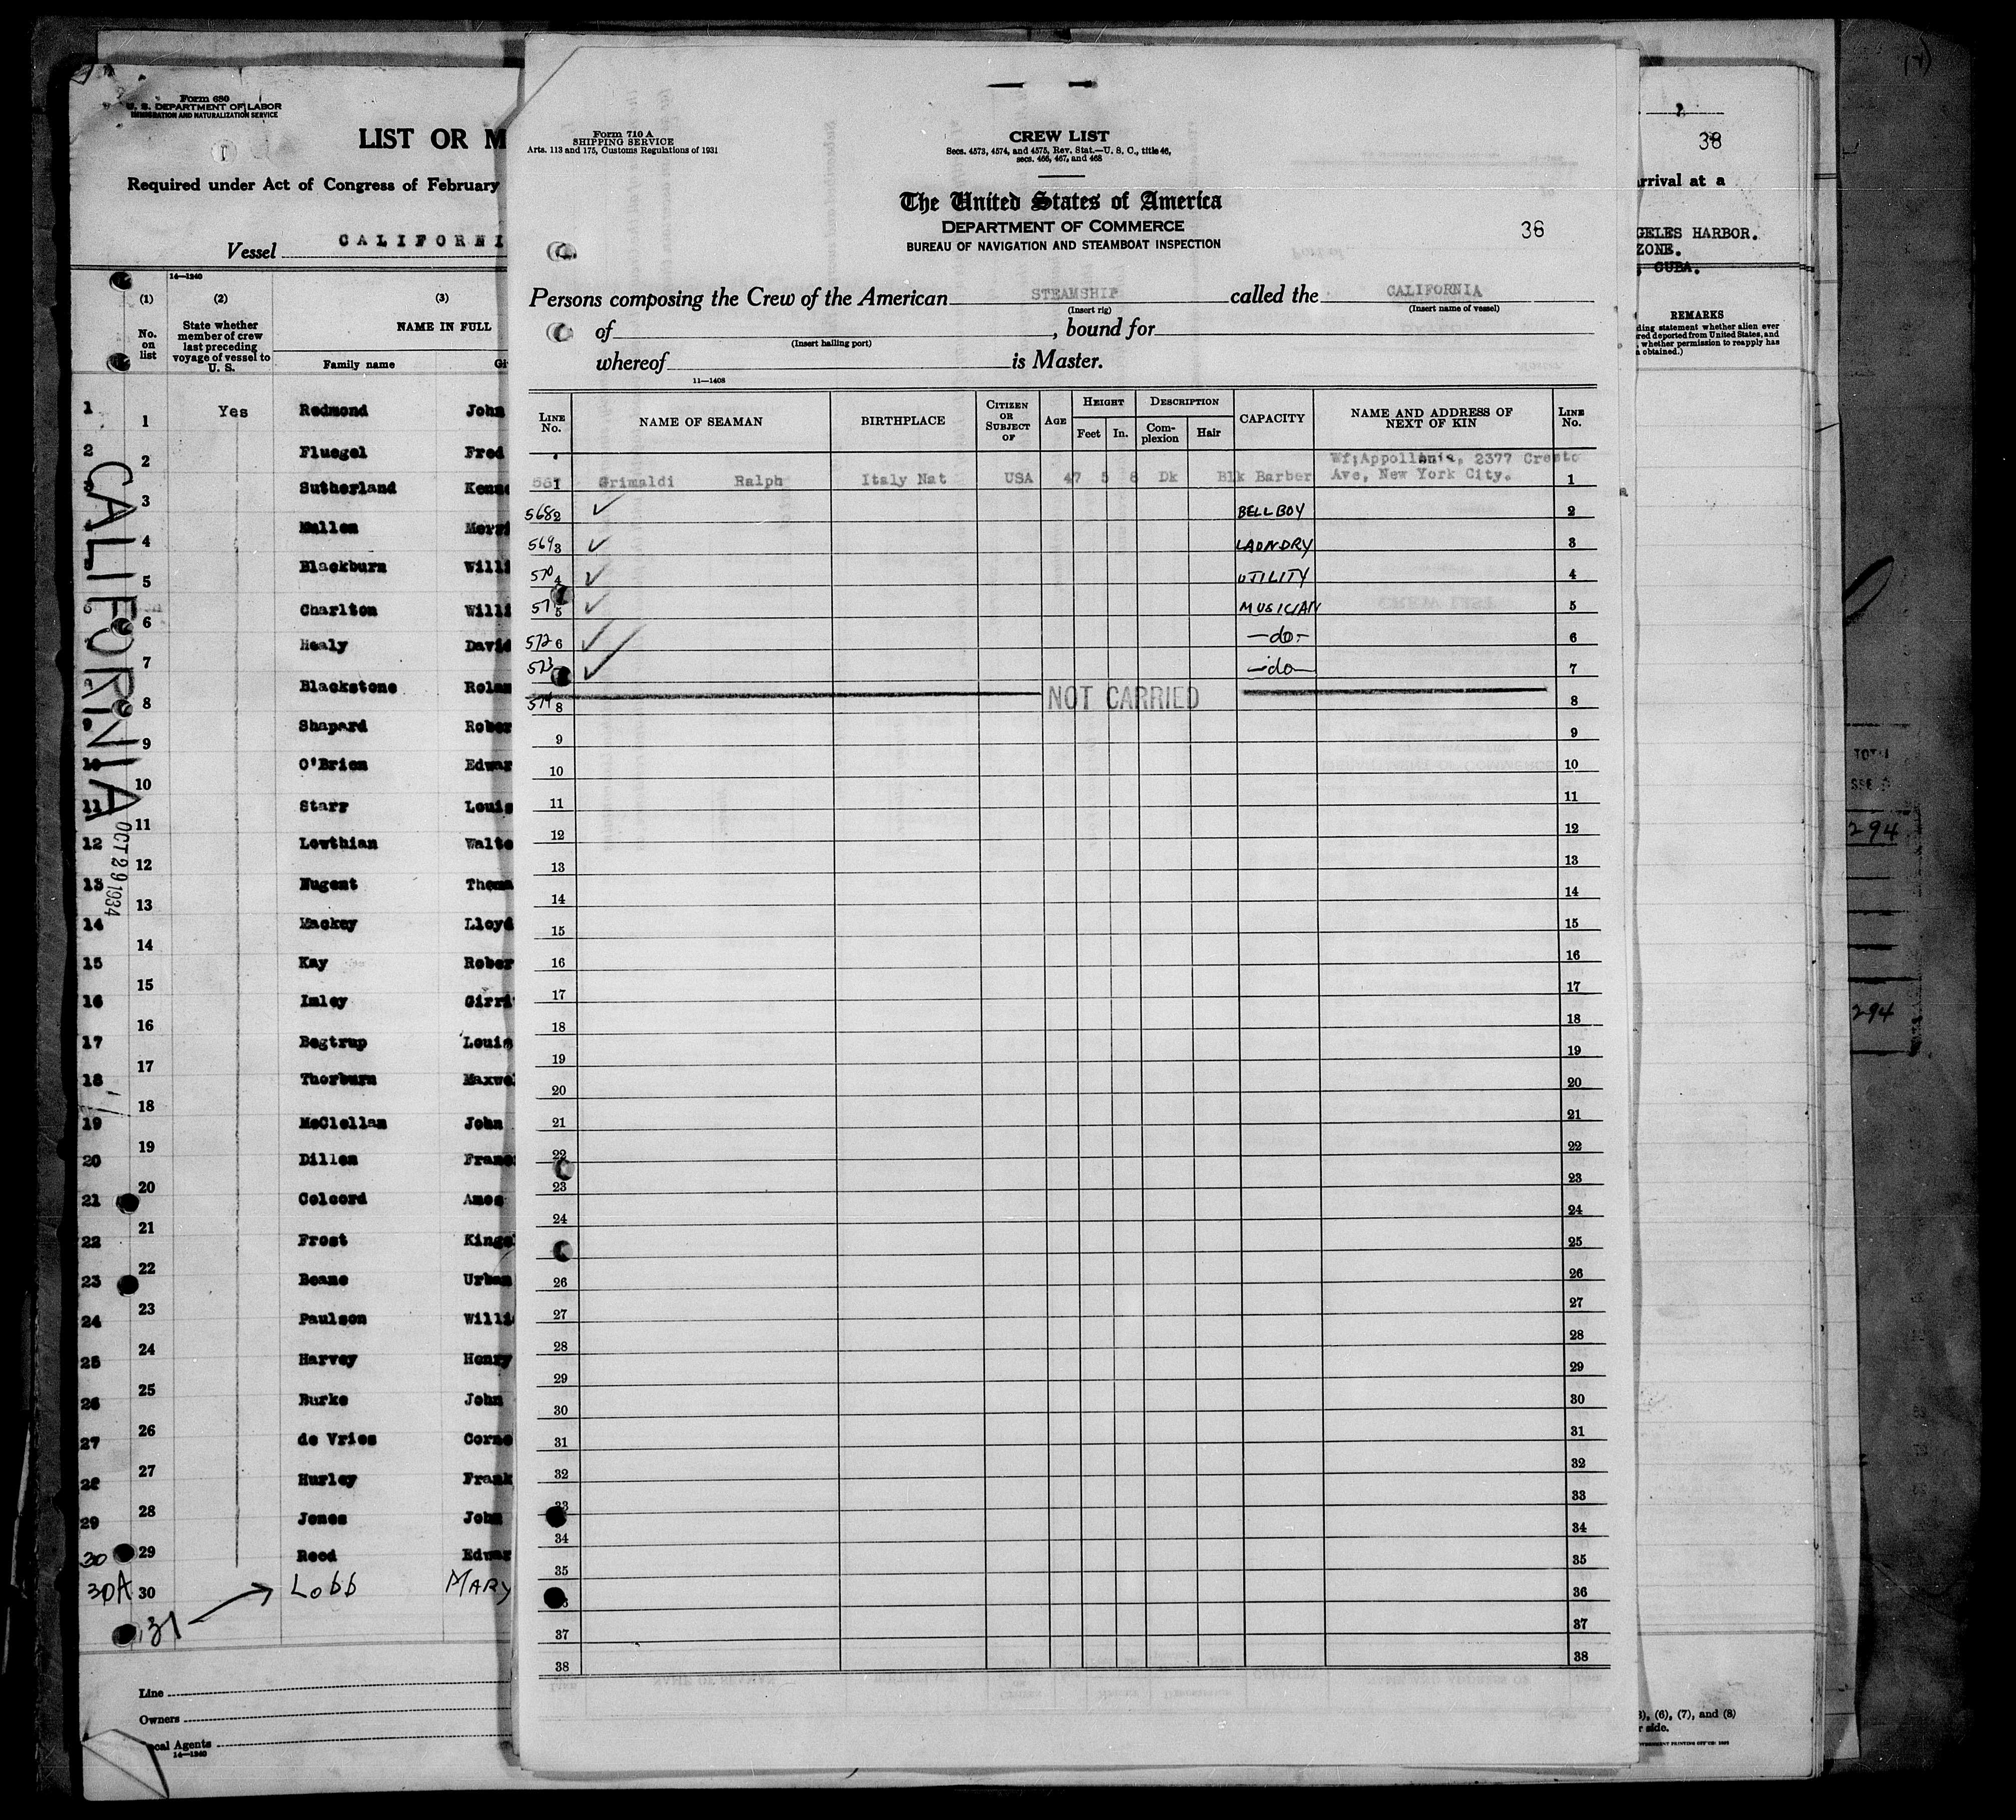 Form 680
U. S. DEPARTMENT OF LABOR
IMMIGRATION AND NATURALIZATION SERVICE
LIST OR M
Required under Act of Congress of February
Vessel CALIFORNI
14—1240
(1) (2) (3)
No. on list
State whether member of crew last preceding voyage of vessel to U. S.
NAME IN FULL
Family name Gi
1 1 Yes Redmond John
2 2 Fluegel Fred
3 3 Sutherland Kenne
4 4 Mullen Merri
5 Blackburn Willi
6 6 Charlton Willi
7 7 Healy David
8 8 Blackstone Rolan
9 9 Shapard Rober
10 10 O'Brien Edwar
11 11 Starr Louis
12 12 Lowthian Walte
13 13 Nugent Thoma
14 14 Mackey Lloyd
15 15 Kay Rober
16 16 Imley Girri
17 17 Begtrup Louis
18 18 Thorburn Maxwel
19 19 McClellan John
20 20 Dillon Franc
21 21 Colcord Amos
22 22 Frost Kings
23 23 Beane Urban
24 24 Paulson Willi
25 25 Harvey Henry
26 26 Burke John
27 27 de Vries Corne
28 28 Hurley Frank
29 29 Jones John
30 Reed Edwar
30A 30 Lobb MARY
31
CALIFORNIA
OCT 29 1934
Line
Owners
cal Agents
14—1240
Form 710 A
SHIPPING SERVICE
Arts. 113 and 175, Customs Regulations of 1931
CREW LIST
Secs. 4573, 4574, and 4575, Rev. Stat.—U. S. C., title 46,
secs. 466, 467, and 468
The United States of America
DEPARTMENT OF COMMERCE
BUREAU OF NAVIGATION AND STEAMBOAT INSPECTION
36
Persons composing the Crew of the American STEAMSHIP called the CALIFORNIA
(Insert rig) (Insert name of vessel)
of , bound for
(Insert hailing port)
whereof is Master.
11—1408
LINE No. NAME OF SEAMAN BIRTHPLACE CITIZEN OR SUBJECT OF AGE HEIGHT Feet In. DESCRIPTION Complexion Hair CAPACITY NAME AND ADDRESS OF NEXT OF KIN LINE No.
Wf;Appollonia, 2377 Cresto
567 1 Grimaldi Ralph Italy Nat USA 47 5 8 Dk Blk Barber Ave, New York City. 1
568 2 ✓ BELLBOY 2
569 3 ✓ LAUNDRY 3
570 4 ✓ UTILITY 4
571 5 ✓ MUSICIAN 5
572 6 ✓ —do— 6
573 ✓ —do— 7
574 8 NOT CARRIED 8
9 9
10 10
11 11
12 12
13 13
14 14
15 15
16 16
17 17
18 18
19 19
20 20
21 21
22 22
23 23
24 24
25
26 26
27 27
28 28
29 29
30 30
31 31
32 32
33 33
34 34
35 35
36
37 37
38 38
38
rrival at a
GELES HARBOR.
ZONE.
CUBA.
REMARKS
ding statement whether alien ever
red deported from United States, and
, whether permission to reapply has
obtained.)
294
294
), (6), (7), and (8)
r side.